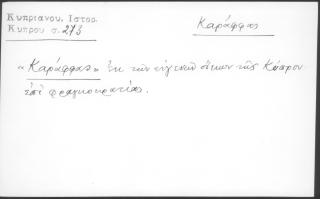 Κυπριανου, Ιστορ.
Κυπρου σ. 273
Καράφφας
«Καράφφας» ἐκ τῶν εὐγενῶν οἴκων τῆς Κύπρου
ἐπὶ φραγκοκρατίας.